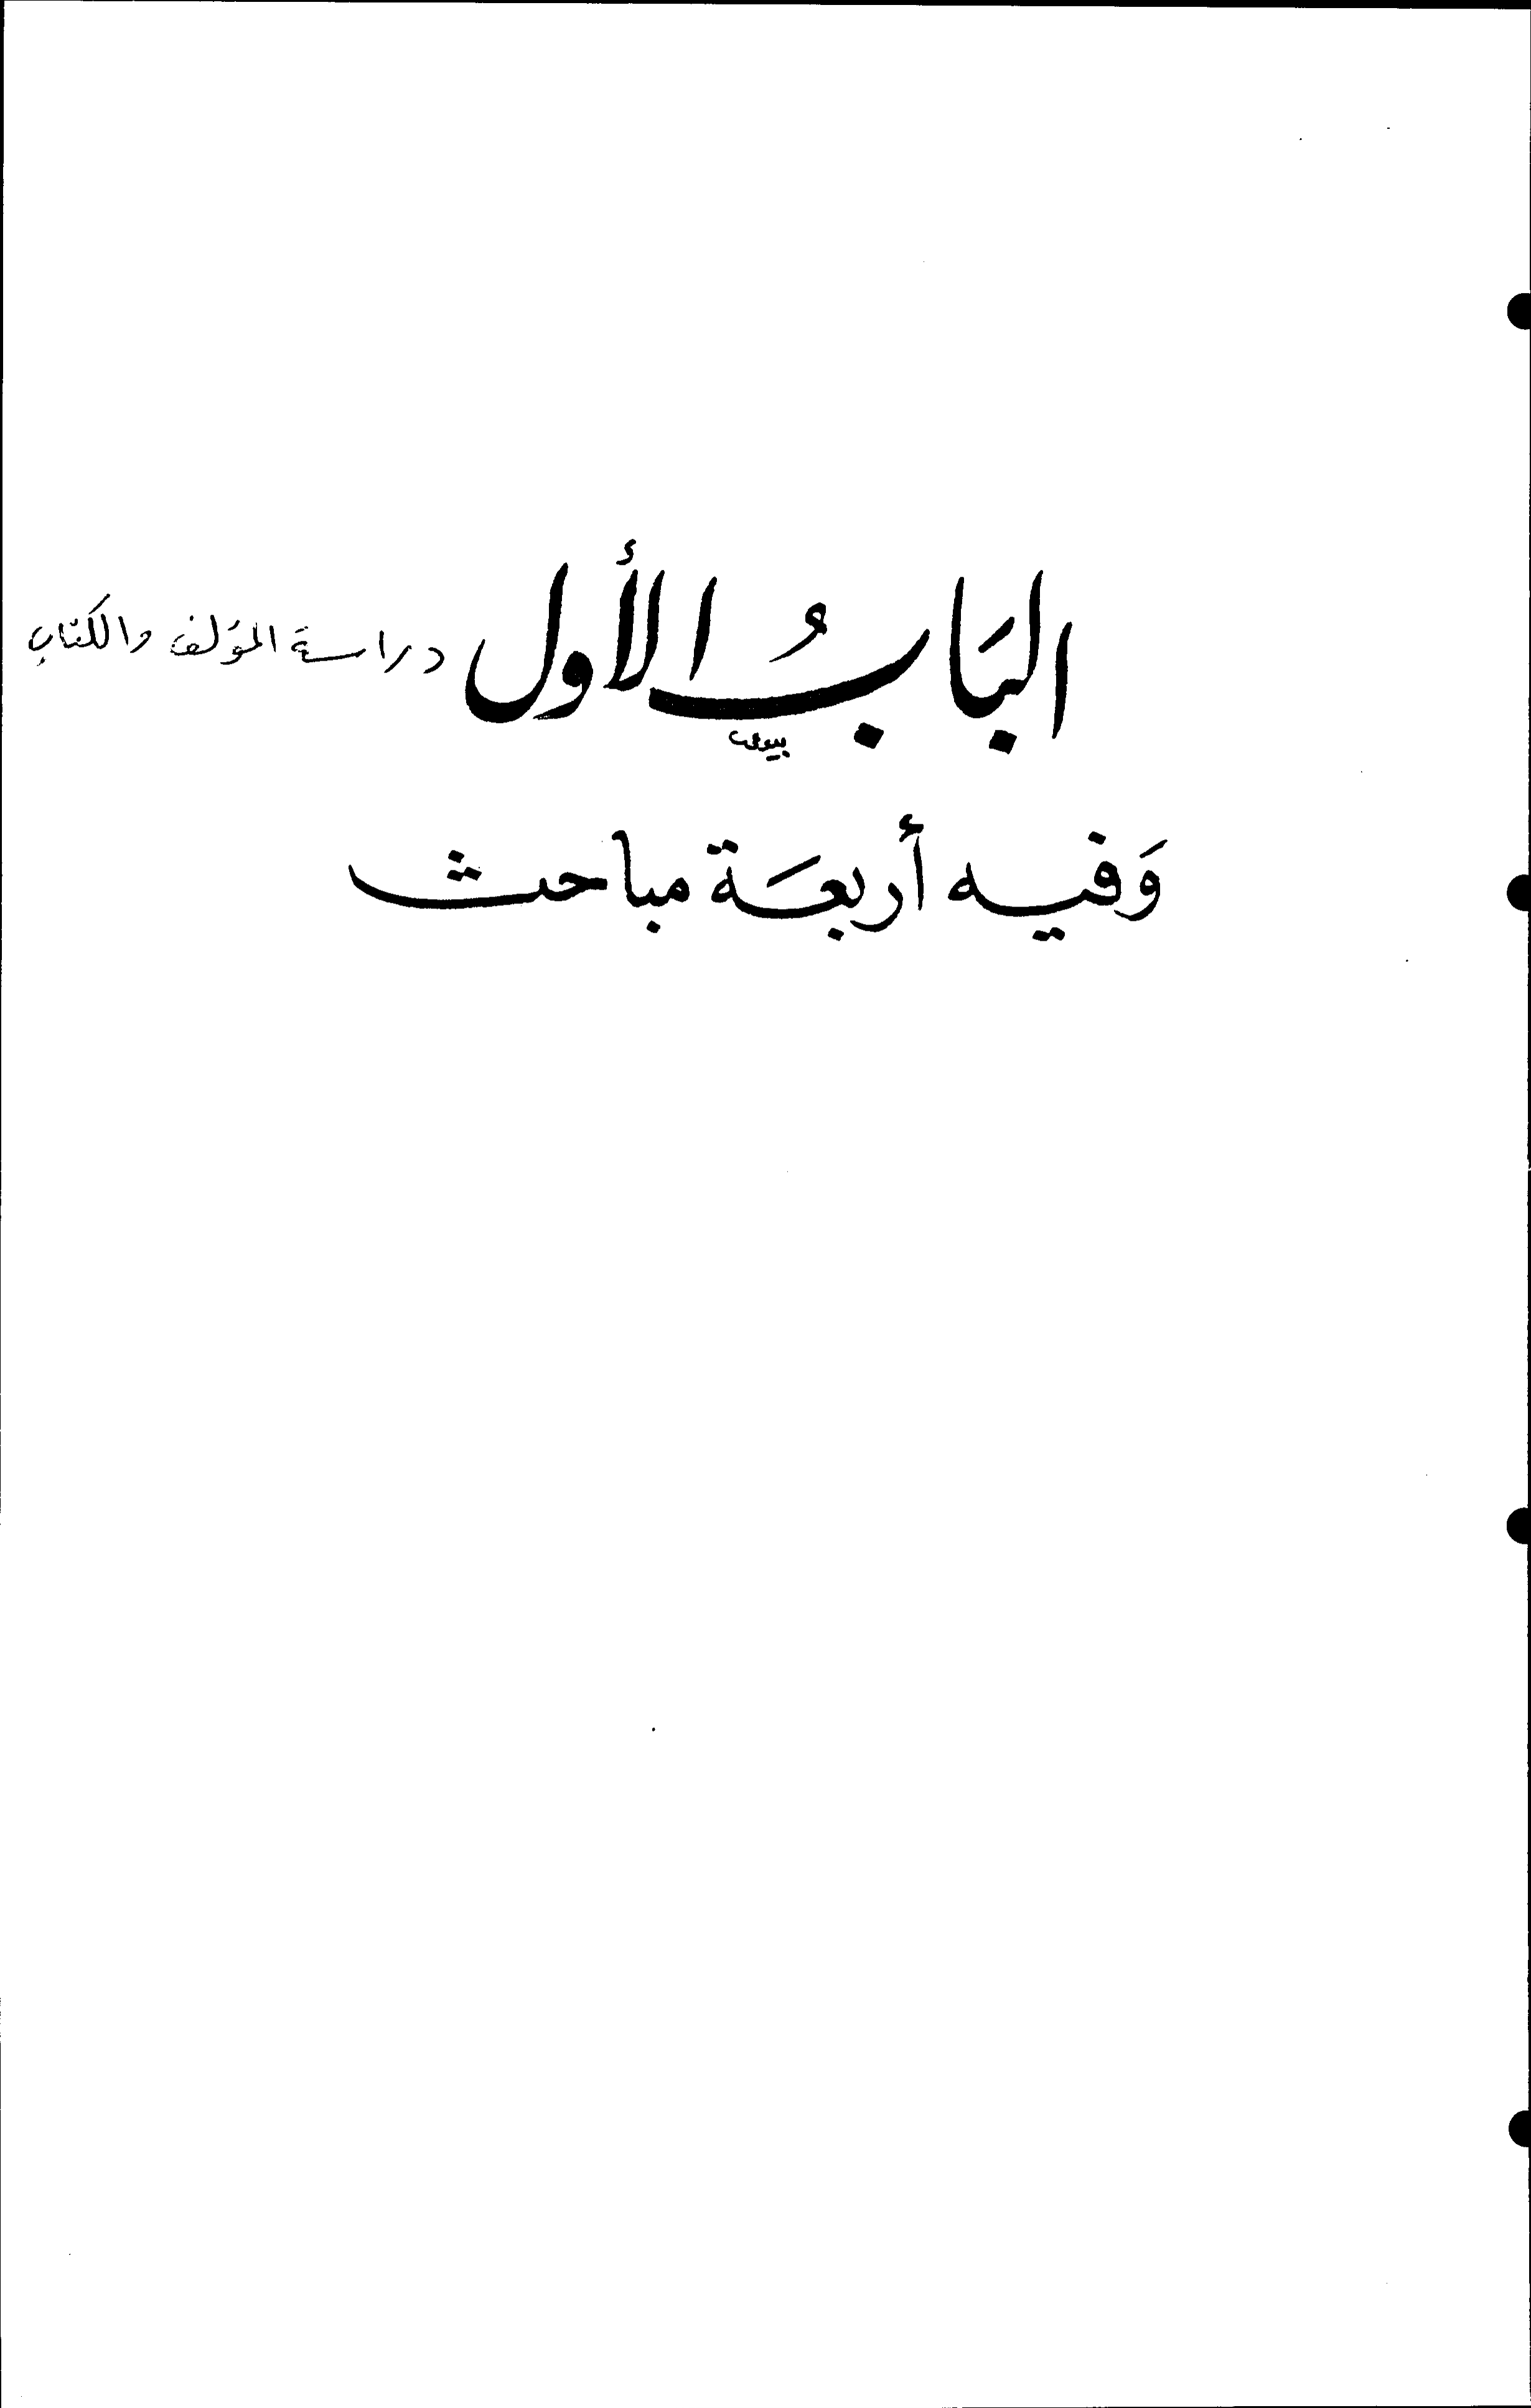 البَابُ الأول دراسة المؤلف والكتاب
وَفيه أربعَة مباحث